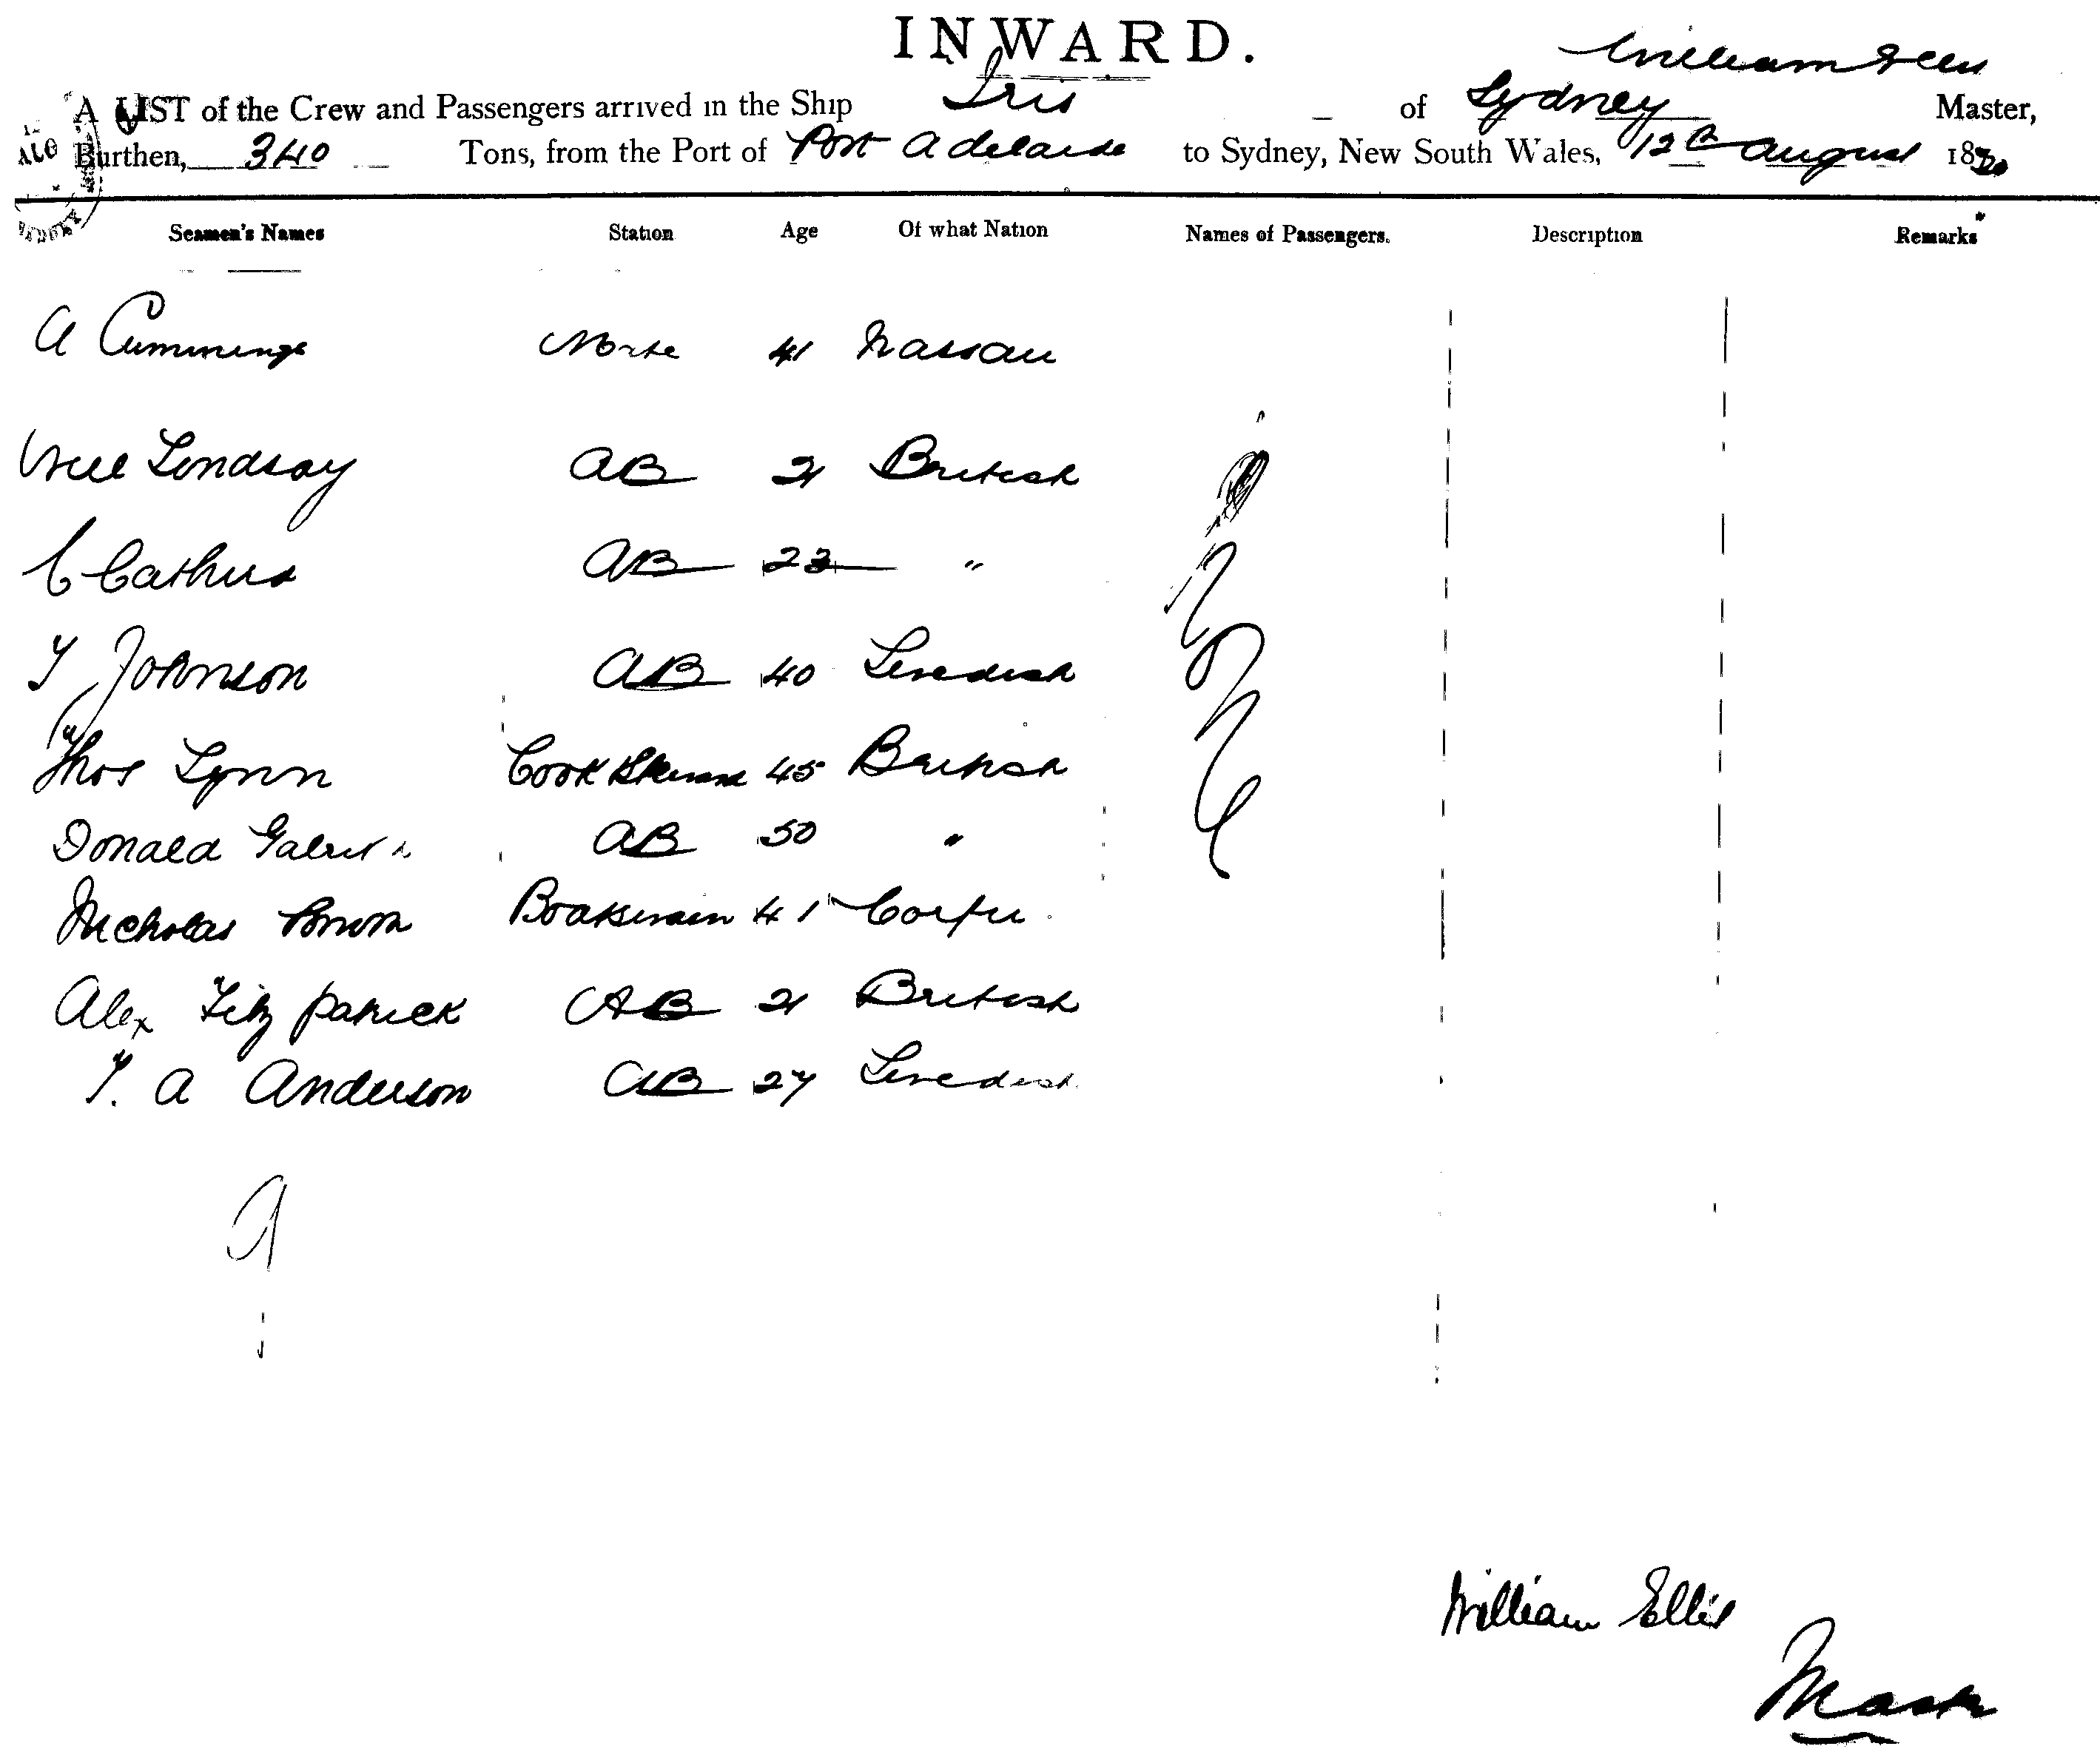 INWARD.
William Ellis
A LIST of the Crew and Passengers arrived in the Ship Iris of Sydney Master,
Burthen, 340 Tons, from the Port of Port Adelaide to Sydney, New South Wales, 12th August 18
Seamen's Names Station Age Of what Nation Names of Passengers. Description Remarks
A Cummings Mate 41 Nassau
Will Lindsay AB 21 British
C AB 23 "
T Johnson AB 40 Swedish
Thos Lynn Cook Steward 45 British
Donald AB 50 "
Nicholas Brown Boatswain 41 Corfu
Alex Fitzpatrick AB 21 British
T. A Anderson AB 27 Swedish
None
9
William Ellis
Master